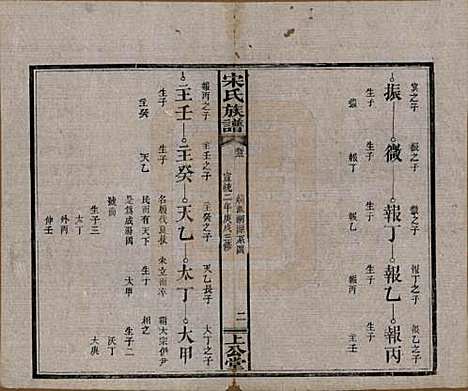 冥之子
振之子
微之子
報丁之子
報乙之子
振 微 報丁 報乙 報丙
生子
生子
生子
生子
微
報丁
報乙
報丙
宋氏族譜
宣統二年庚戌三修
二
上公堂
報丙之子
主壬之子
主癸之子
天乙長子
太丁之子
主壬 主癸 天乙 太丁 大甲
生子
主癸
生子
天乙
名履伐夏救
民而有天下
號商
是為成湯國
生子三
太丁
外丙
仲壬
未立而卒
生子
大甲
大宗伊尹
相之
生子二
沃丁
大庚